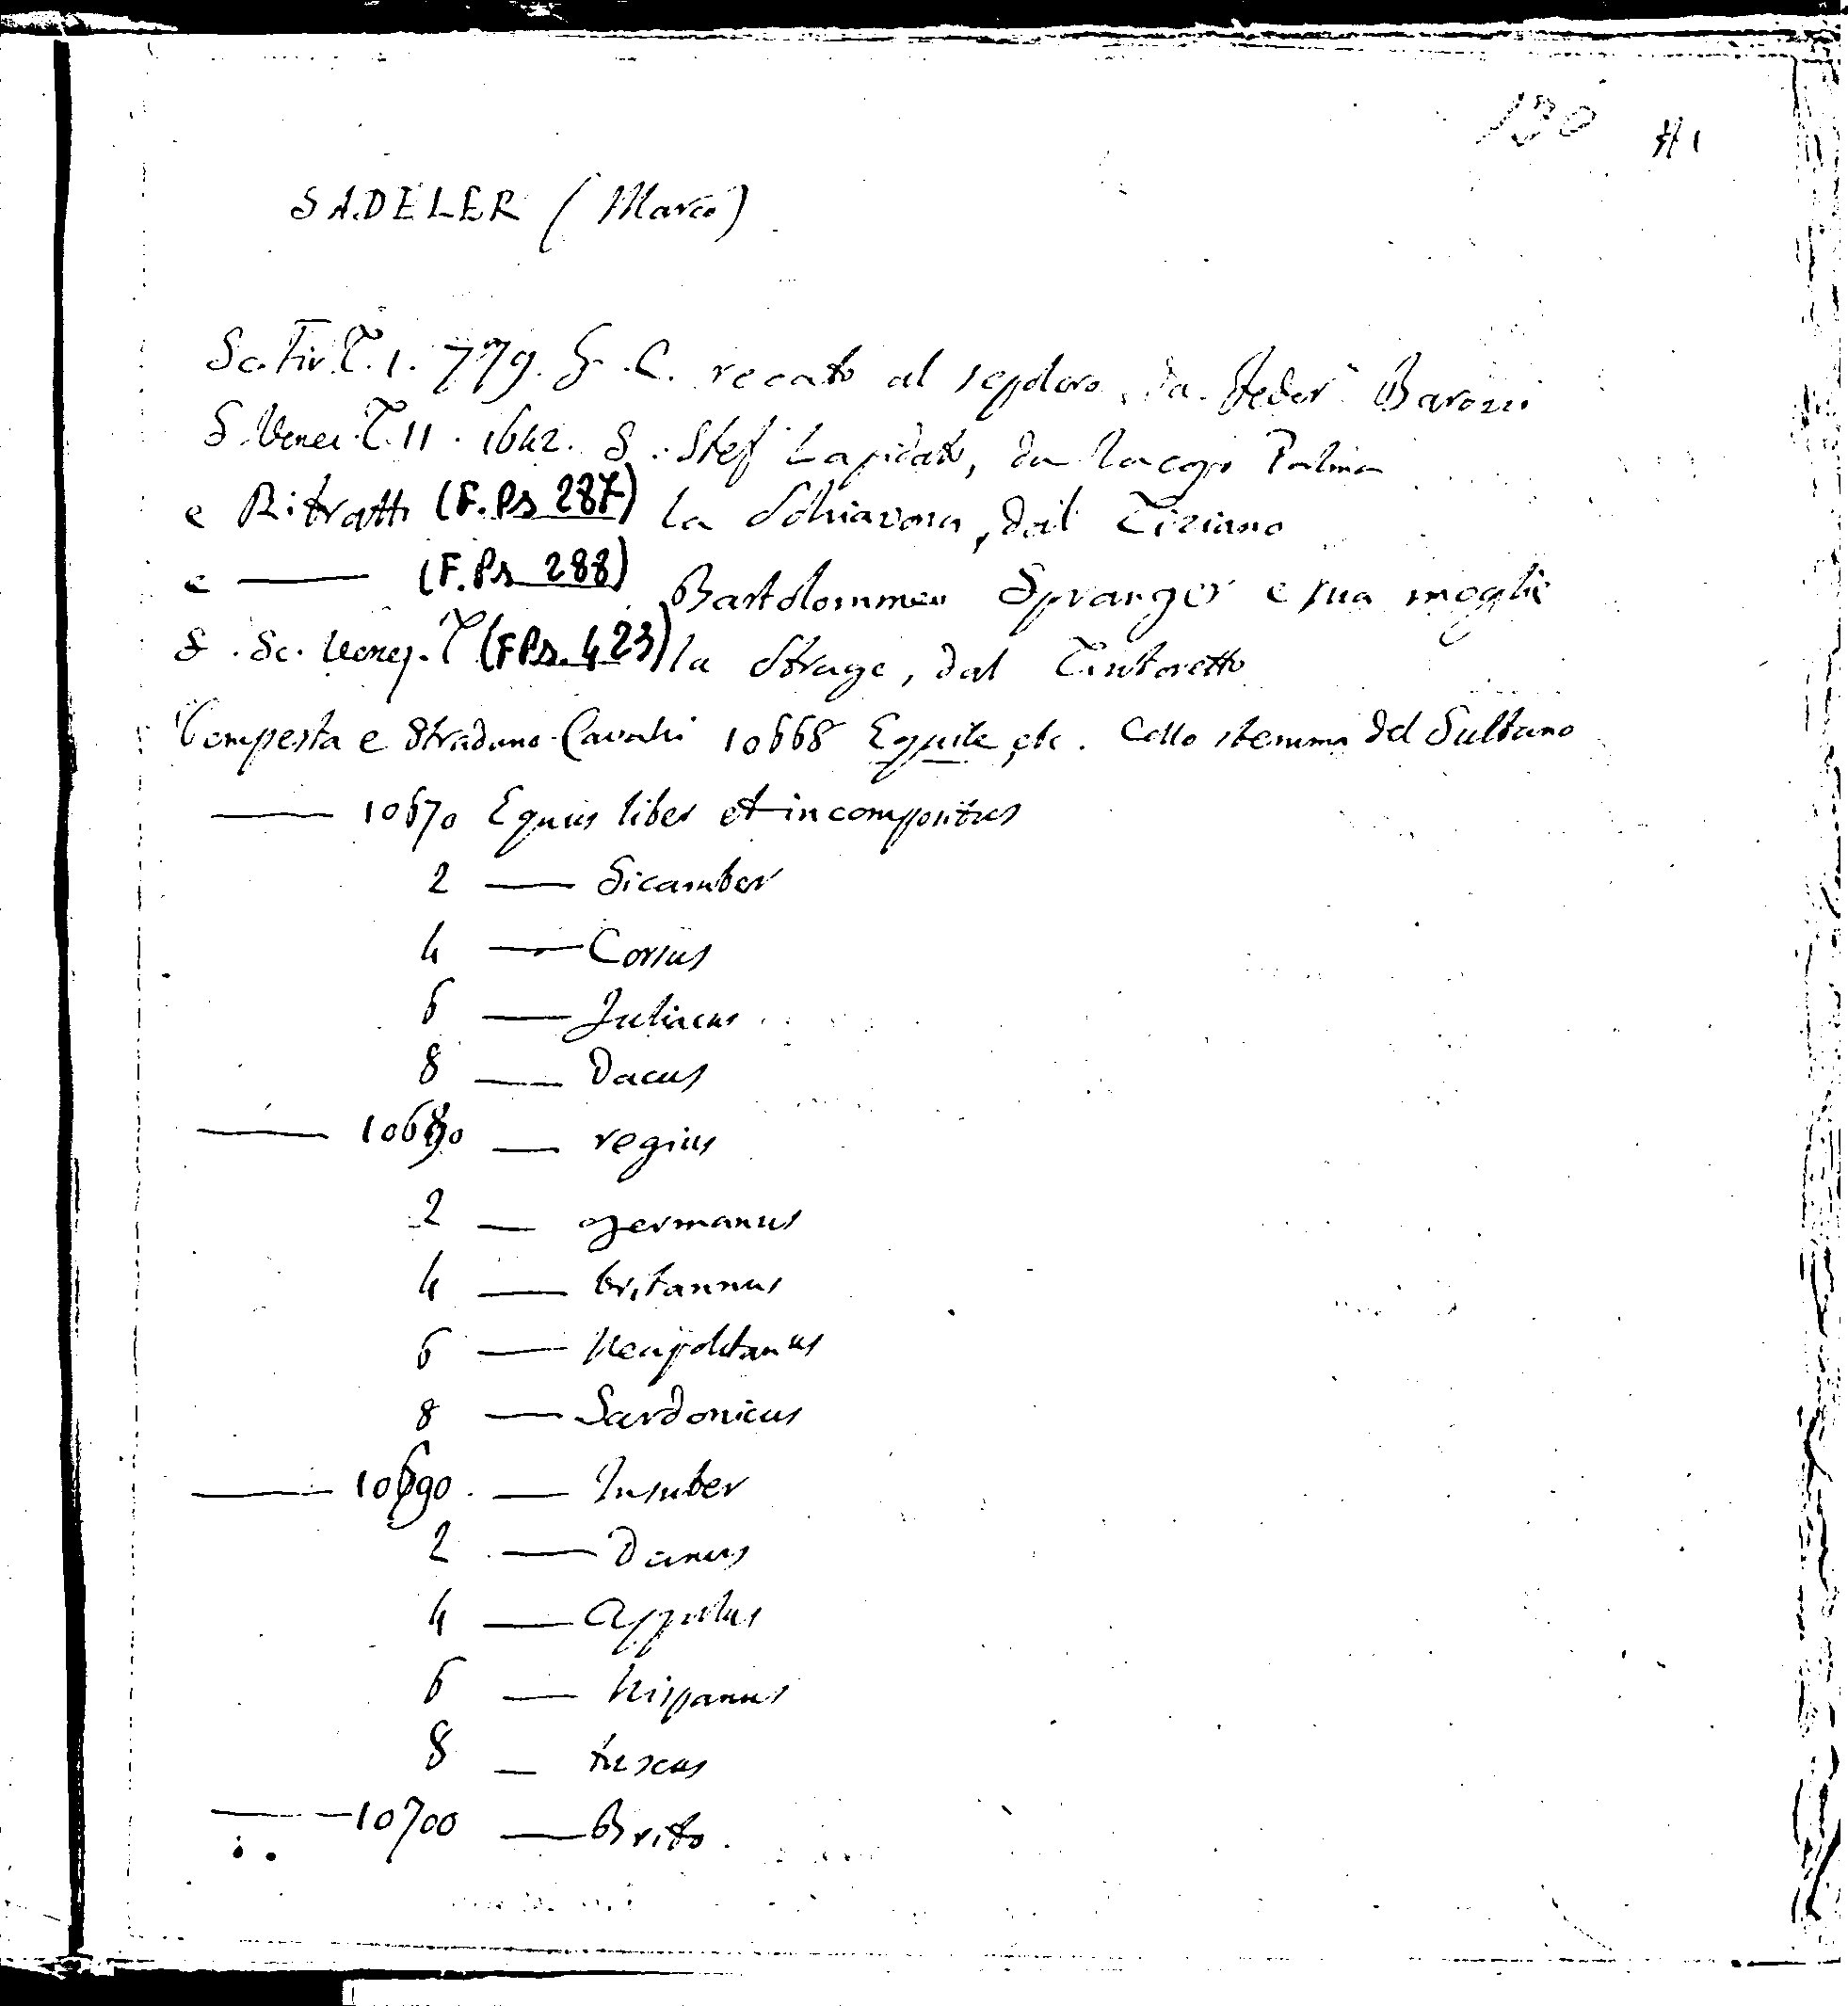 130 #1
SADELER (Marco)
Sc. Fir. T. 1. 779. G. C. recato al sepolcro, da Feder° Barozzi
S. Venez. T. 11. 1642. S. Stef° Lapidato, da Iacopo Palma
e Ritratti (F. Ps 287) la Schiavona, dal Tiziano
e —— (F. Ps 288) Bartolommeo Spranger e sua moglie
S. Sc. Venez. T (F Ps. 423) la Strage, dal Tintoretto
Tempesta e Stradano Cavalli 10668 Equile etc. Collo stemma del Sultano
—— 10670 Equus liber et incompositus
2 —— Sicamber
4 —— Corsus
6 —— Juliacus
8 —— Dacus
—— 10680 — regius
2 — germanus
4 —— britannus
6 —— Neapolitanus
8 —— Sardonicus
—— 10690. —— Insuber
2 —— Danus
4 —— Appulus
6 —— hispanus
8 — tuscus
—— 10700 —— Brito.